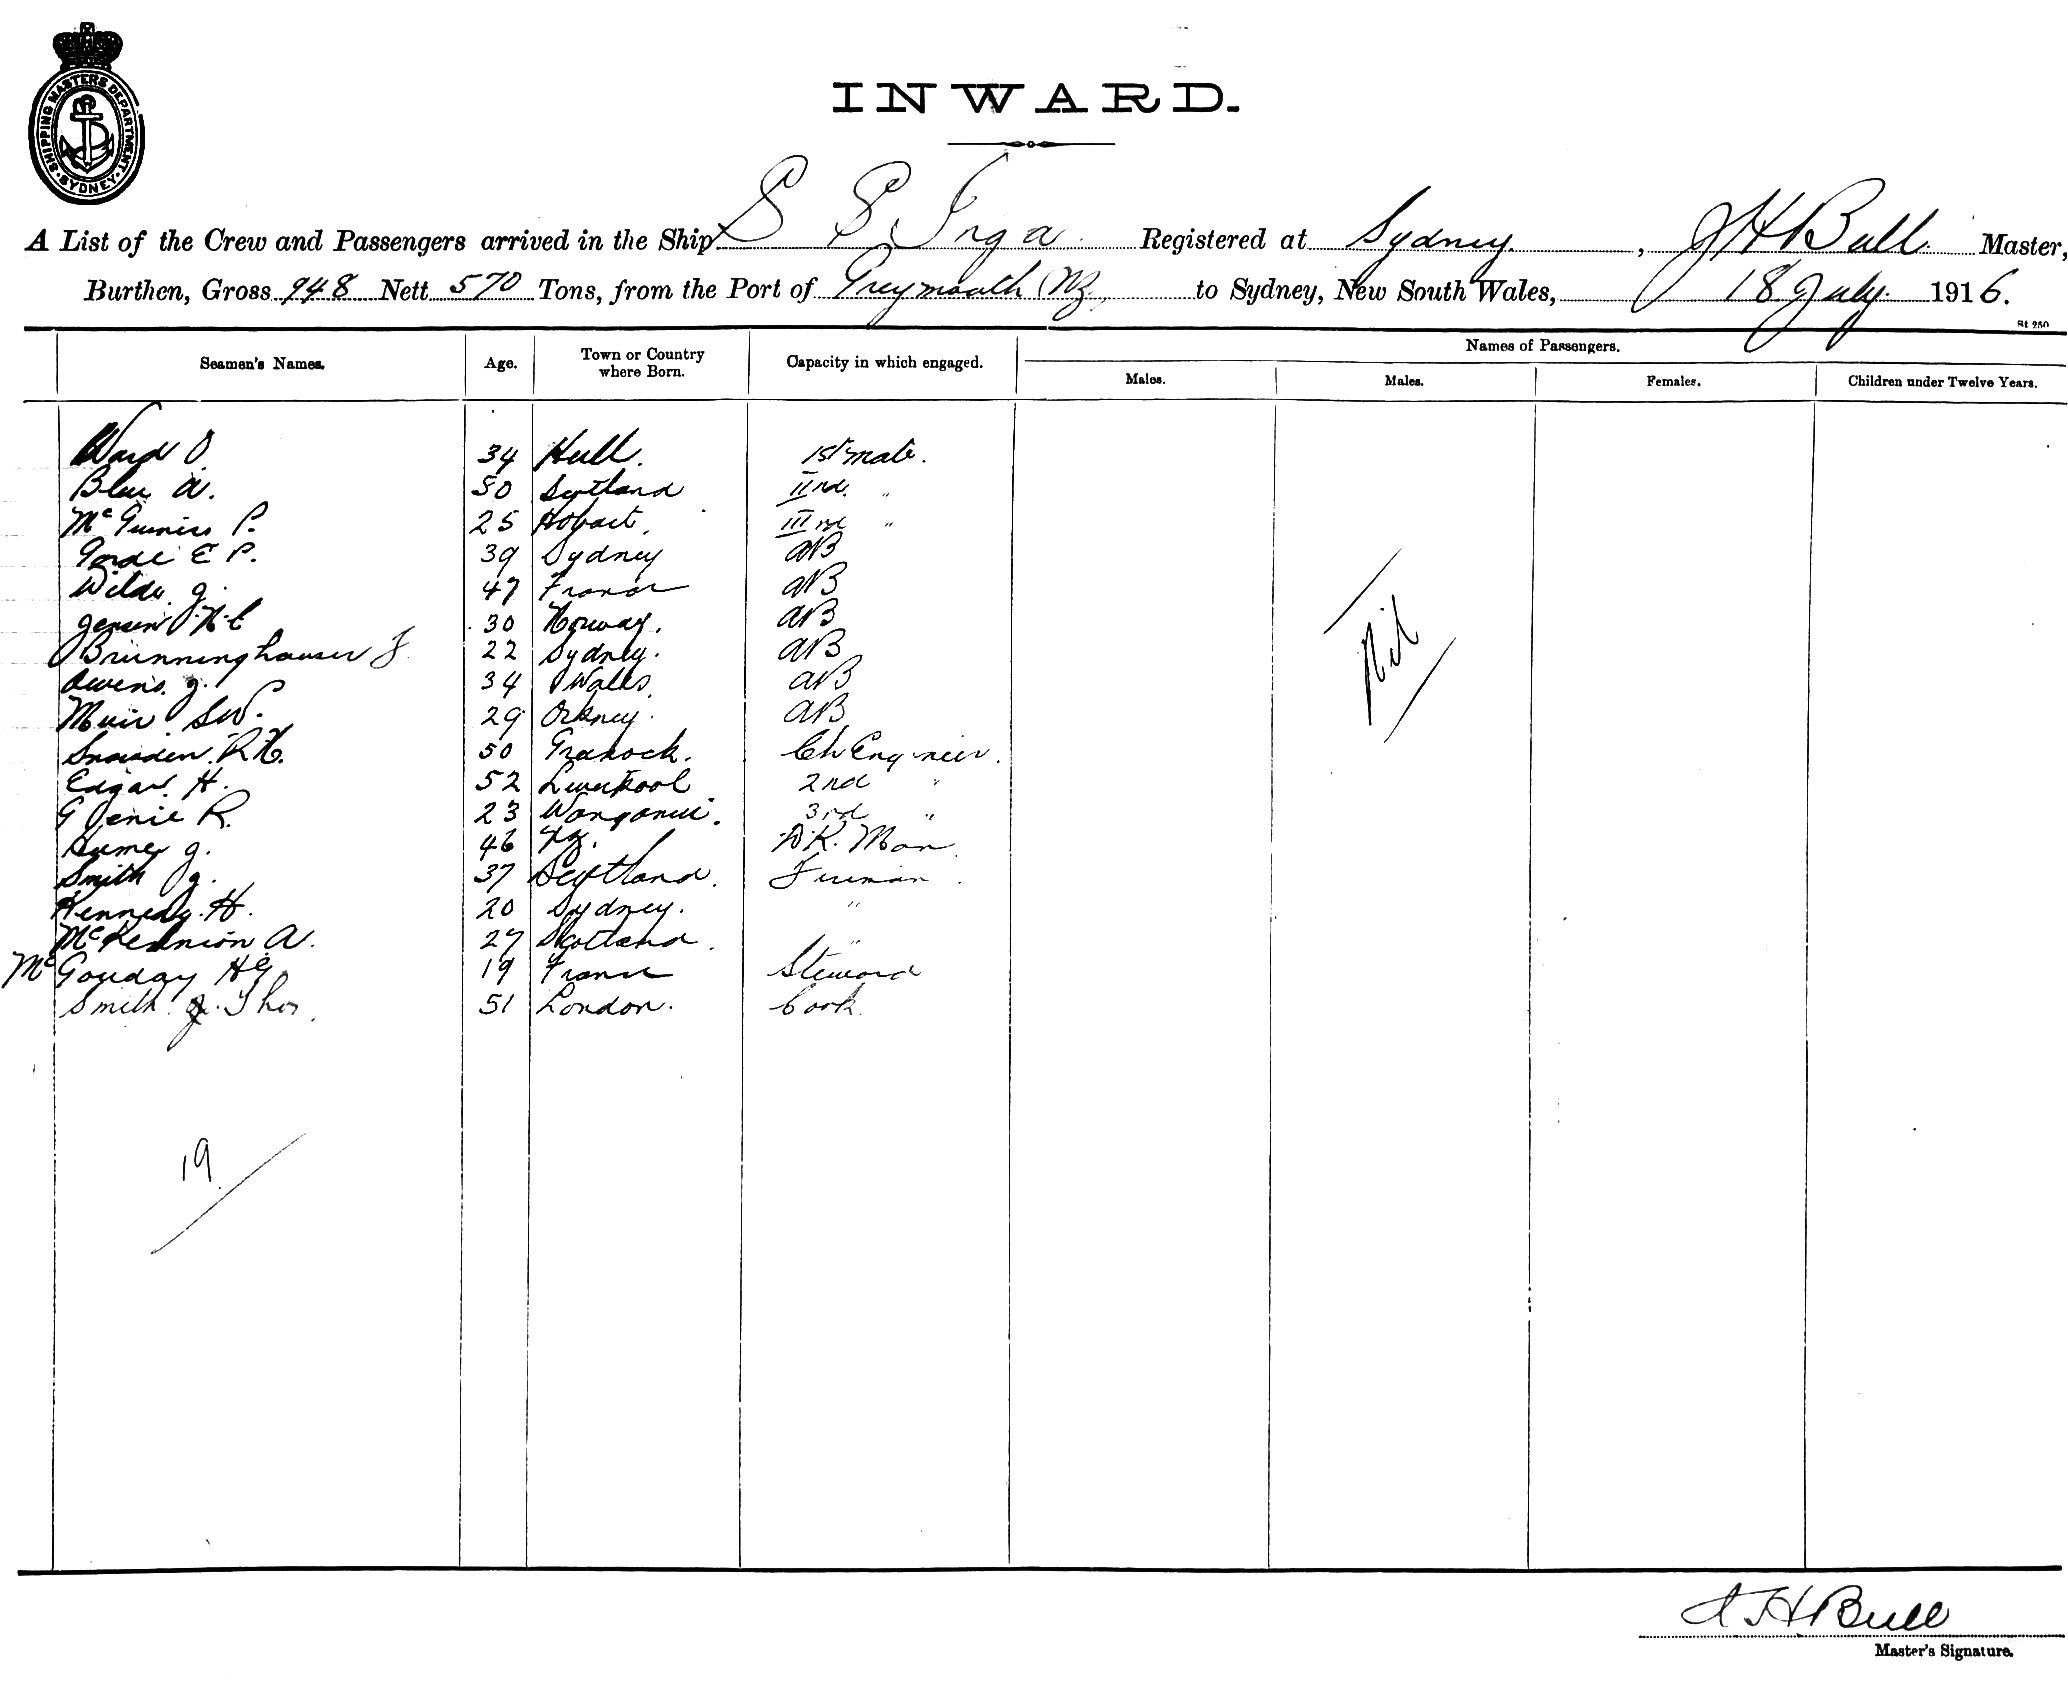 SHIPPING MASTERS DEPARTMENT · SYDNEY ·
INWARD.
A List of the Crew and Passengers arrived in the Ship S S Inga Registered at Sydney, J H Bull Master,
Burthen, Gross 948 Nett 570 Tons, from the Port of Greymouth NZ, to Sydney, New South Wales, 18 July 1916.
St 250
Seamen's Names. Age. Town or Country where Born. Capacity in which engaged. Names of Passengers.
Males. Males. Females. Children under Twelve Years.
Ward O 34 Hull. 1st mate.
Blue A. 50 Scotland IInd. "
McGuiness P. 25 Hobart. IIIrd "
E P. 39 Sydney AB
Wilde J. 47 France AB
Jensen H C 30 Norway. AB
Brunninghauser J 22 Sydney. AB
Owens J. 34 Wales. AB
Muir S W. 29 Orkney. AB
Snowden R H. 50 Ch Engineer.
Edgar H. 52 Liverpool 2nd "
Glenie R. 23 Wanganui. 3rd "
Hume J. 46 NZ. D K. Man
Smith J. 37 Scotland. Fireman.
Kennedy H. 20 Sydney. "
McKennion A. 27 Scotland. "
McGouday H G 19 France Steward
Smith J. Thos. 51 London. Cook.
Nil
19
J H Bull
Master's Signature.